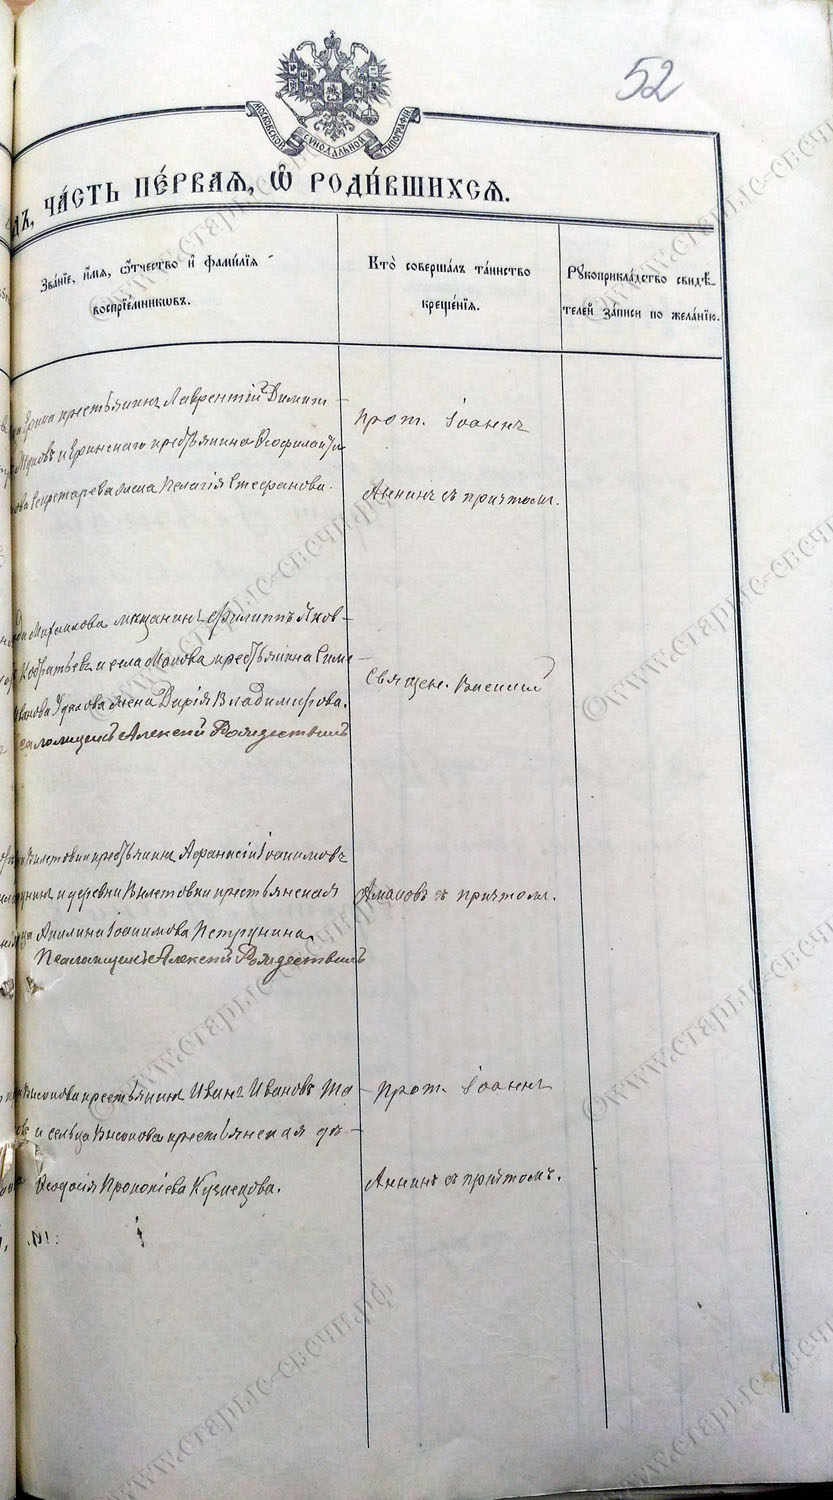 52
МОСКОВСКОЙ СѴНОДАЛЬНОЙ ТИПОГРАФІИ
ЧА́СТЬ ПЕ́РВАѦ, Ѿ РОДИ́ВШИХСѦ.
Зва́нїе, и҆́мѧ, ѻ҆́тчество и҆ фами́лїѧ
воспрїе́мникѡвъ.
Кто̀ соверша́лъ та́инство
креще́нїѧ.
Рꙋкоприкла́дство свидѣ́-
телей за́писи по жела́нїю.
крестьянинъ Лаврентій Димит-
и Еринскаго крестьянина Ѳеофилакта
Секретарева жена Пелагія Стефанова.
Прот. Іоаннъ
Аннинъ съ причтомъ.
Михаилова мѣщанинъ Филиппъ Яков-
и села крестьянина Симе-
Иванова жена Дарія Владимирова.
Псаломщикъ Алексій Рождествинъ
Священ. Василій
крестьянинъ Афанасій Іоакимовъ
и деревни крестьянская
Акилина Іоакимова Петрунина
Псаломщикъ Алексій Рождествинъ
съ причтомъ.
крестьянинъ Иванъ Ивановъ
и сельца крестьянская дѣ-
Ѳеодосія Прокопіева Кузнецова.
Прот. Іоаннъ
Аннинъ съ причтомъ.
©www.старые-свечи.рф